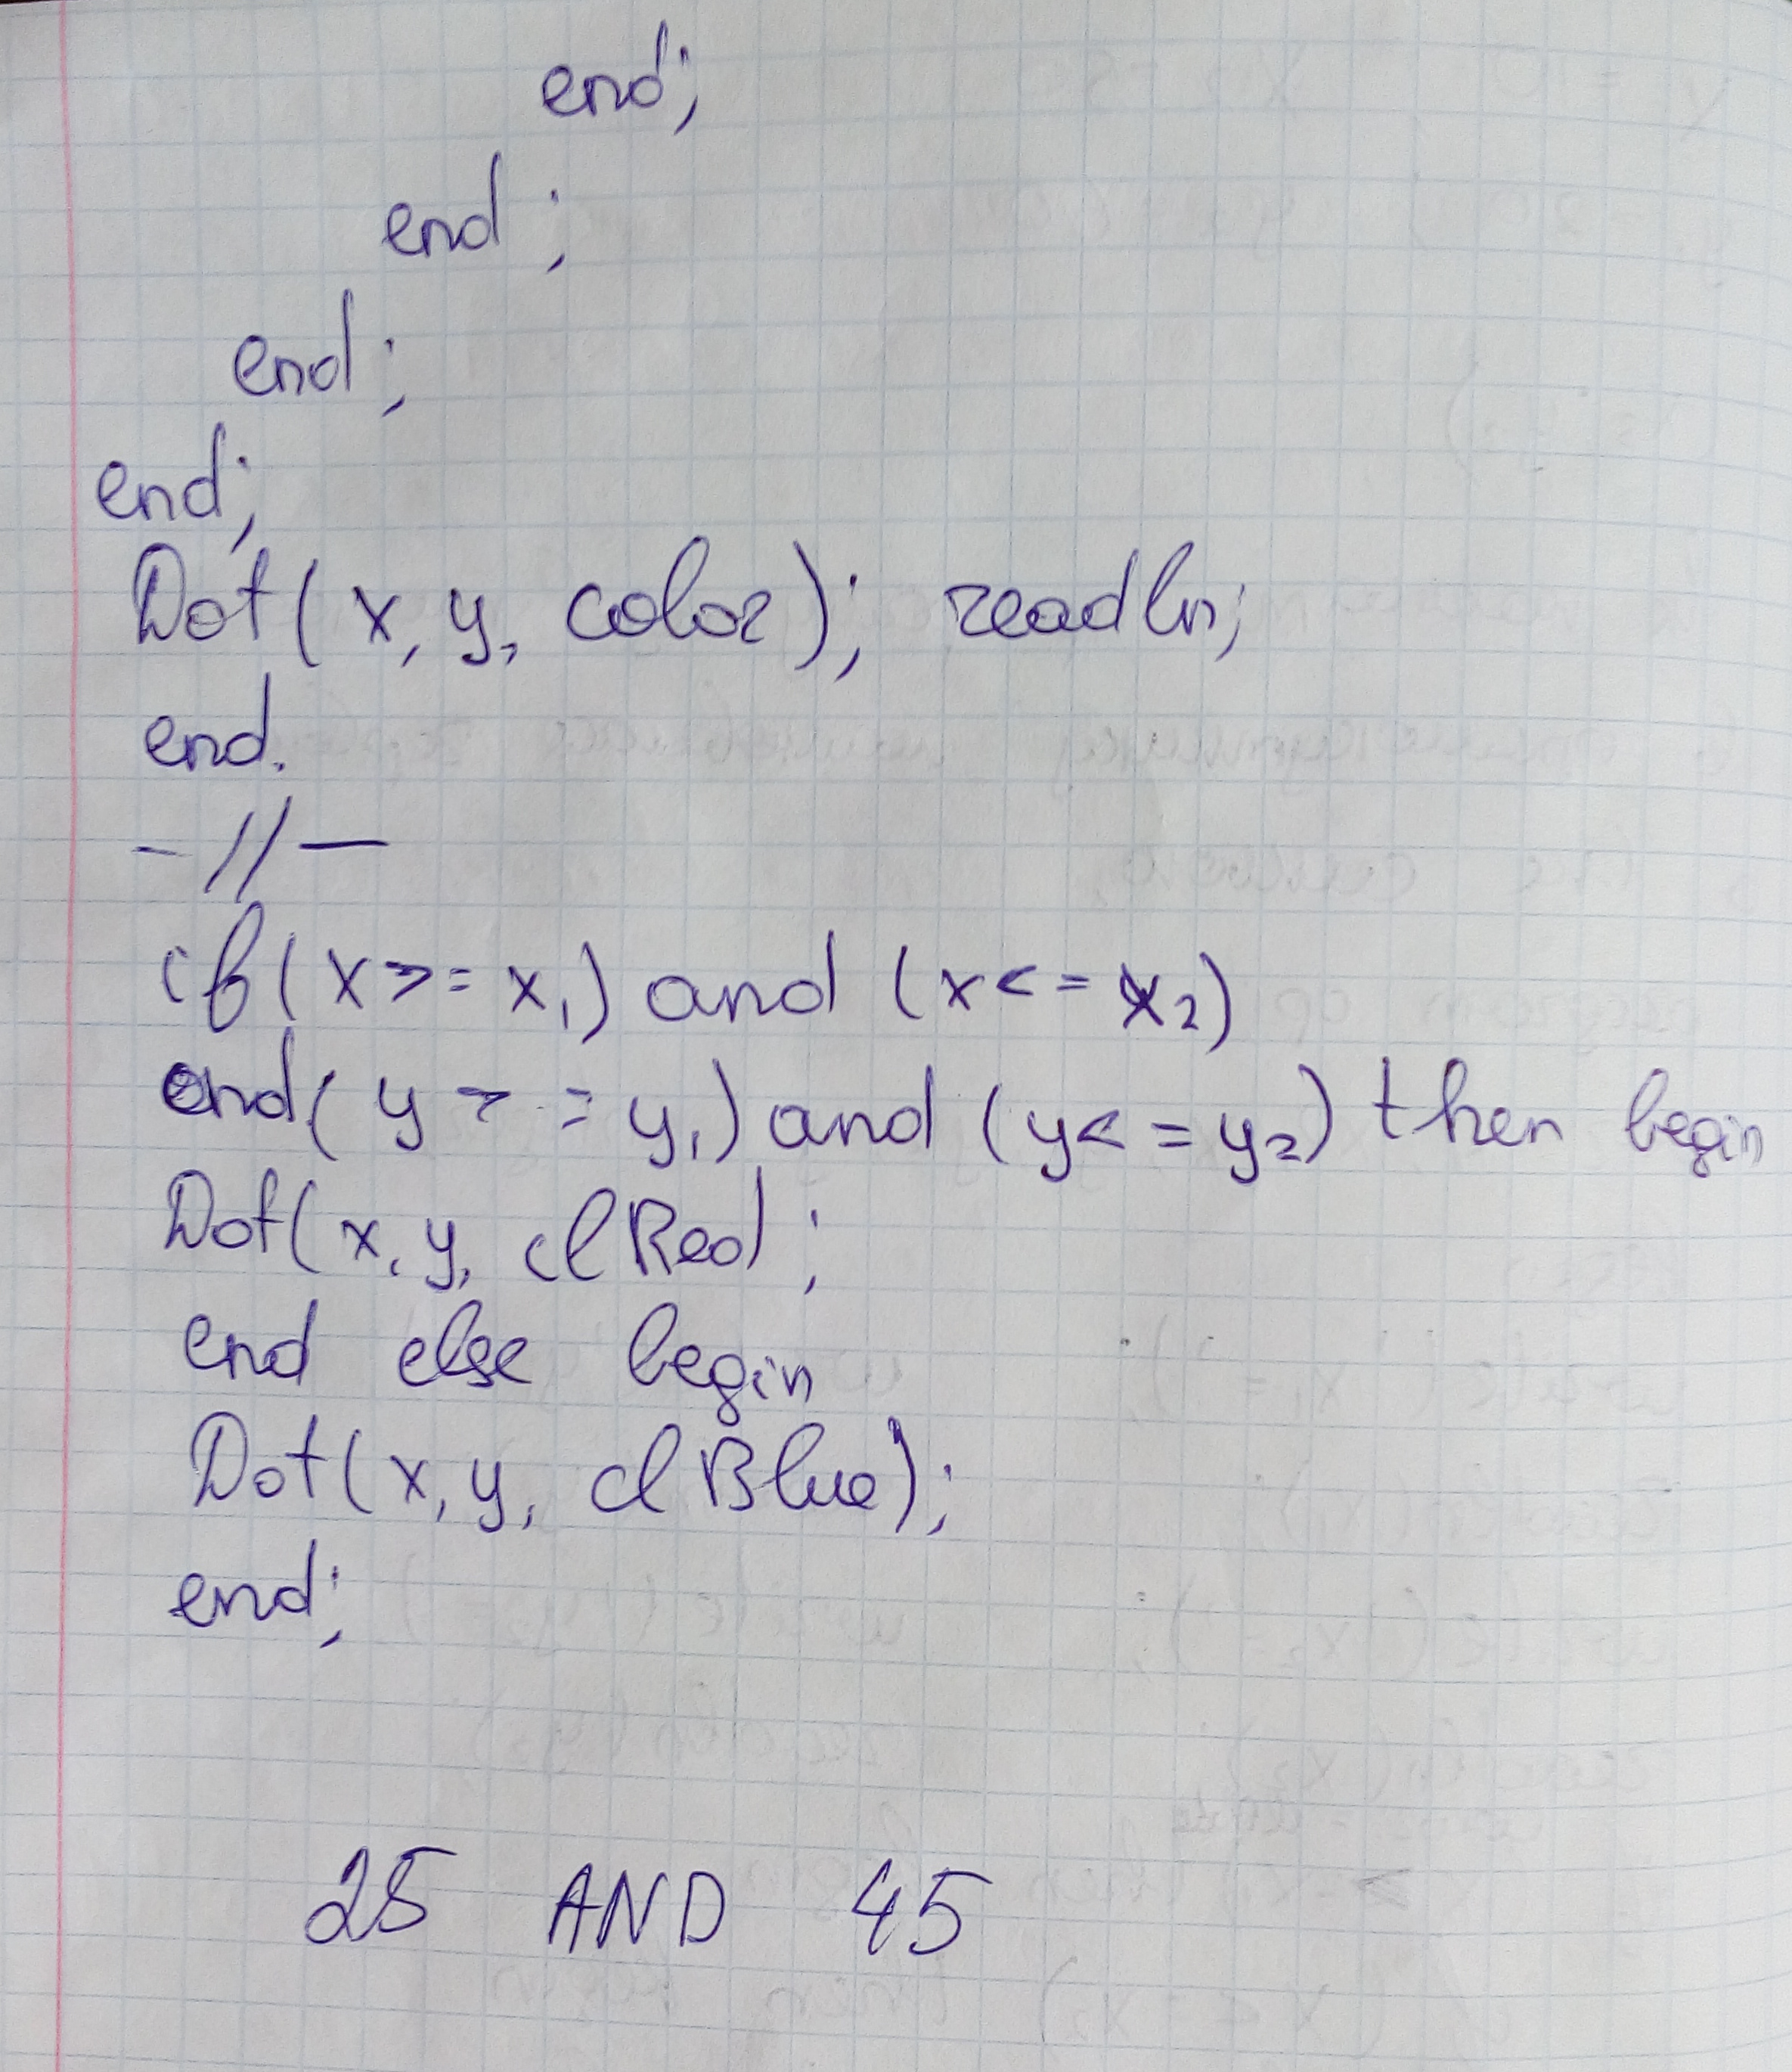 end;
end;
end;
end;
Dot(x, y, color); readln;
end.
- // -
if(x>=x₁) and (x<=x₂)
and(y>=y₁) and (y<=y₂) then begin
Dot(x, y, clRed);
end else begin
Dot(x, y, clBlue);
end;
25 AND 45